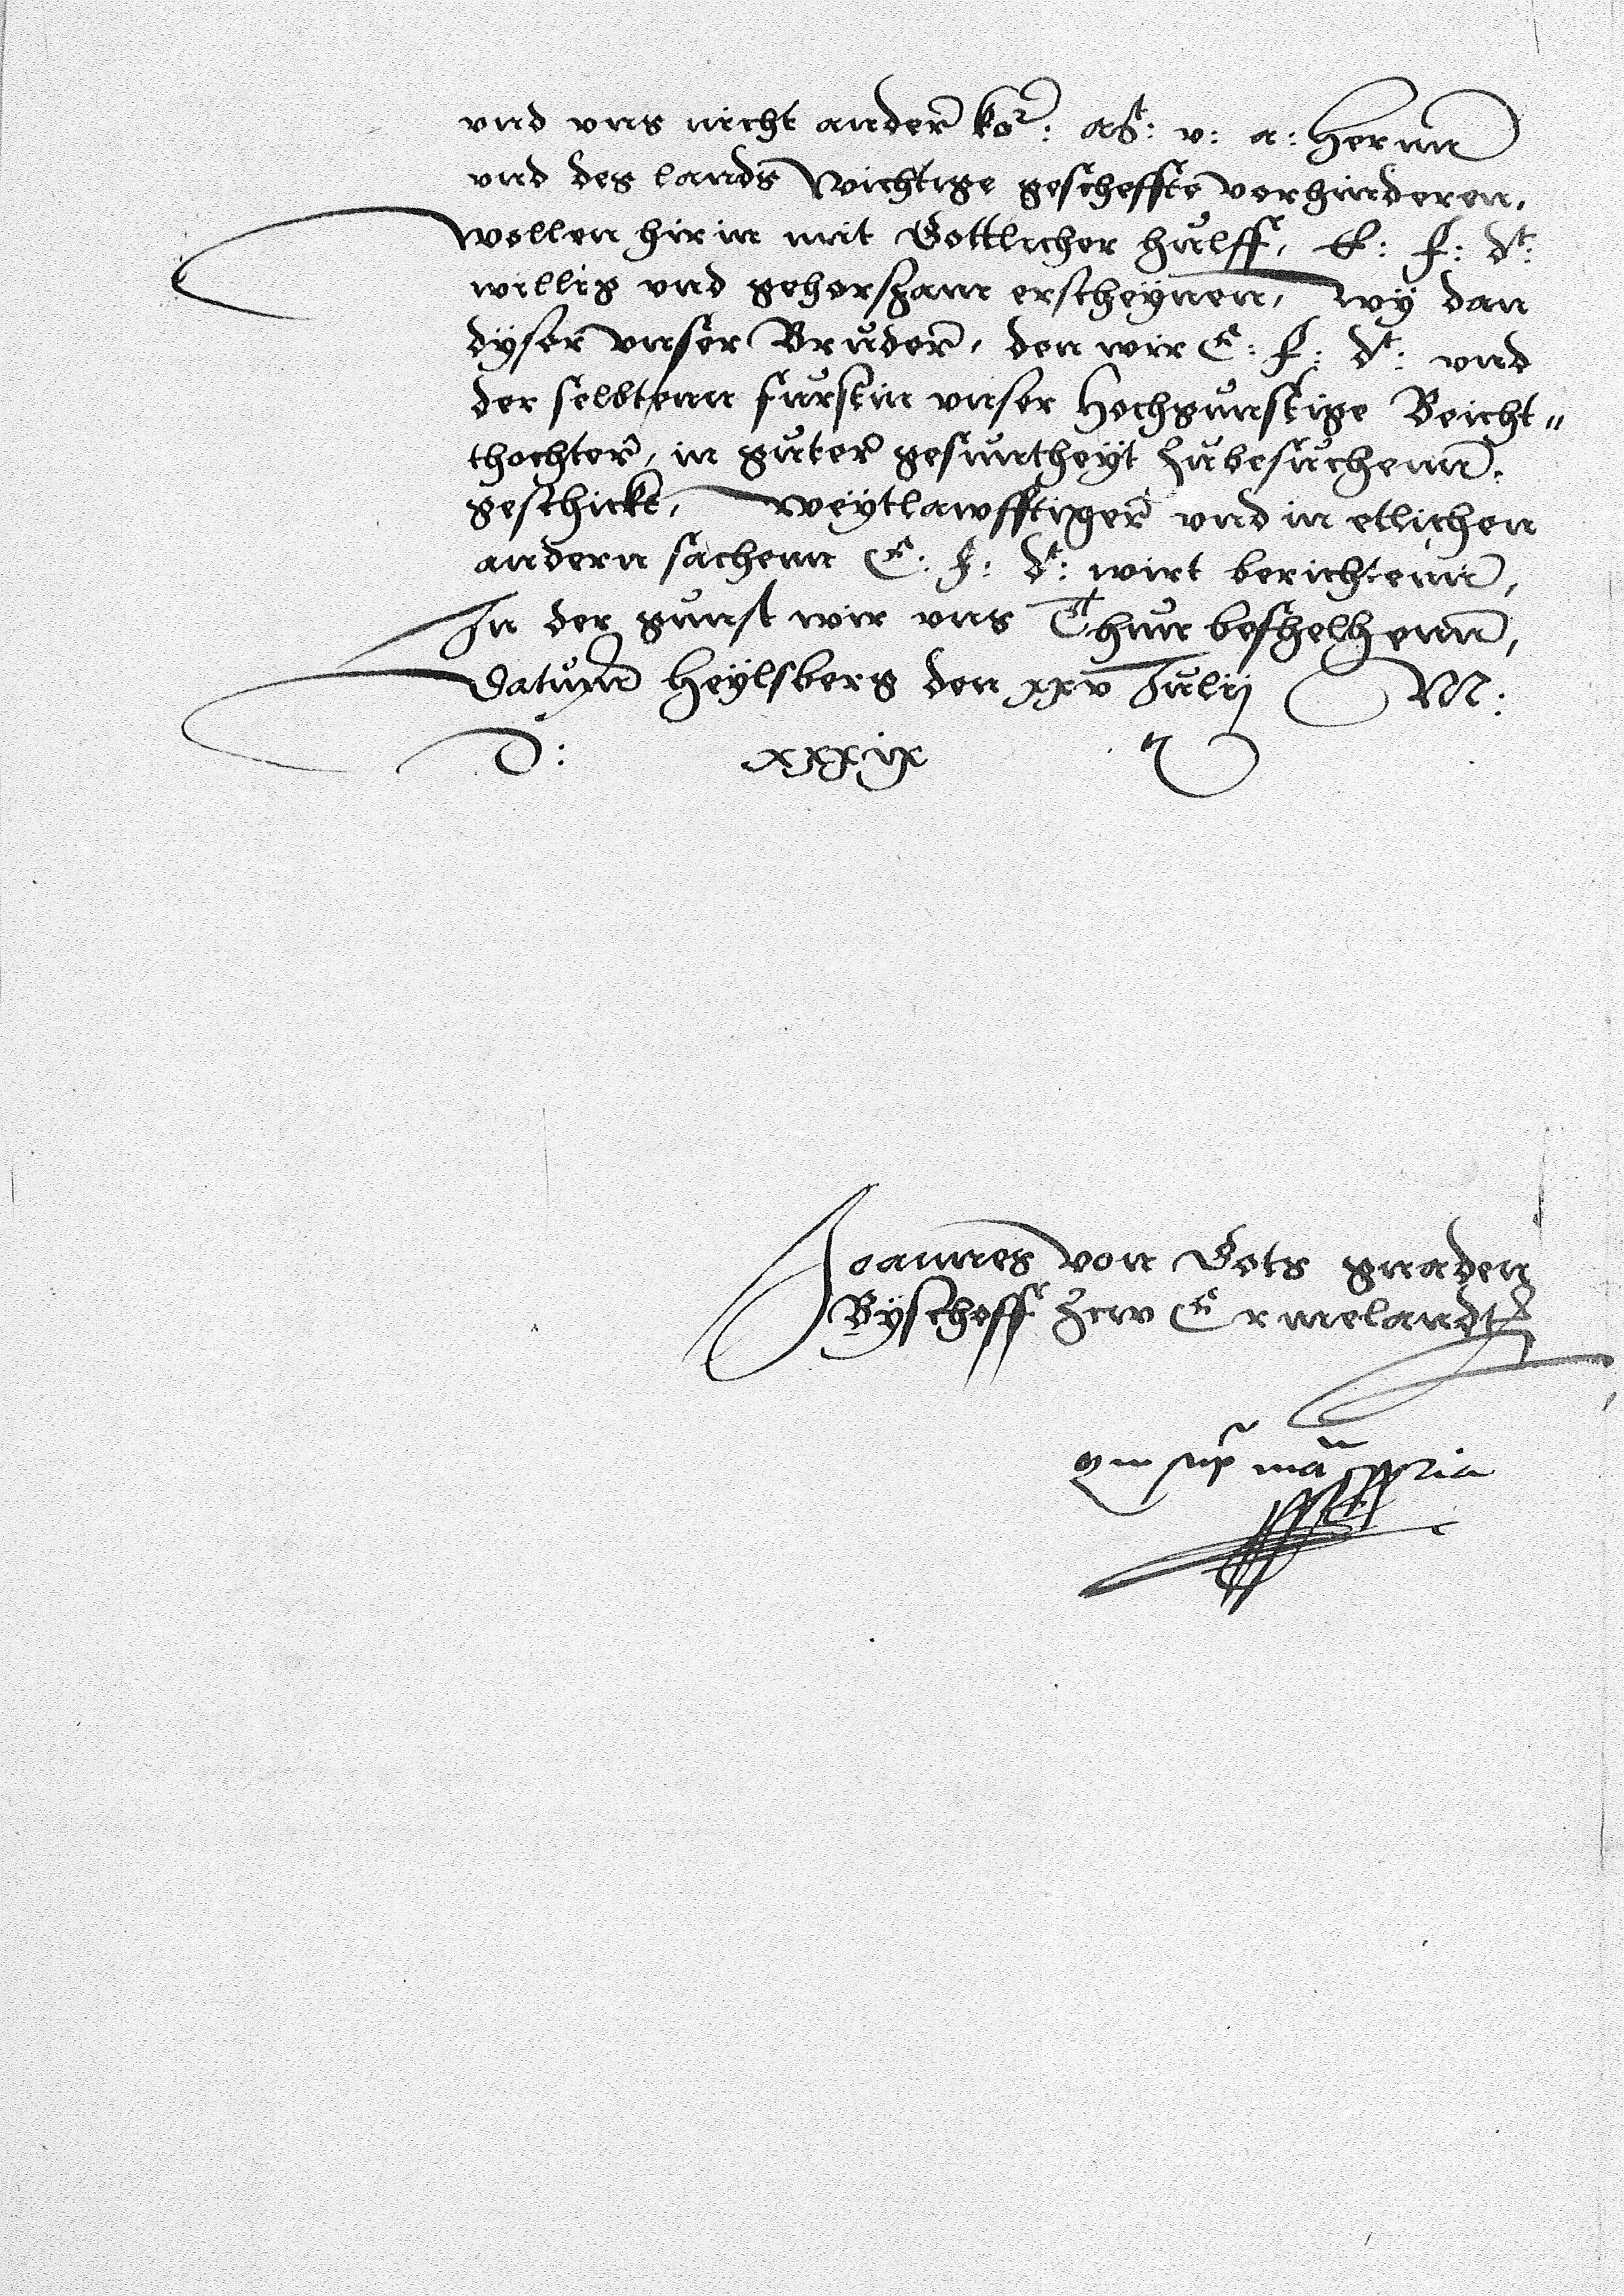 vnd vns nicht ander ko: mt: v: a: Hernn
vnd des lands wichtige gescheffte vorhinderen,
wollen hirin mit Gottlicher hulff, E: f: dt:
willig vnd gehorszam erscheynen, wy dan
dyser vnser Bruder, den wir E: f: dt: vnd
der selbtenn furstin vnser Hochgunstige Beicht=
thochter, in guter gesuntheyt zubesuchenn
geschickt, weytlawfftiger vnd in etlichen
andern sachenn E: f: dt: wirt berichtenn,
In der gunst wir vns Thun befhelhenn,
Datum Heylsberg den xxv Julij M:
D: xxxix
Joannes von Gots gnaden
Byschoff zcw Ermelandt